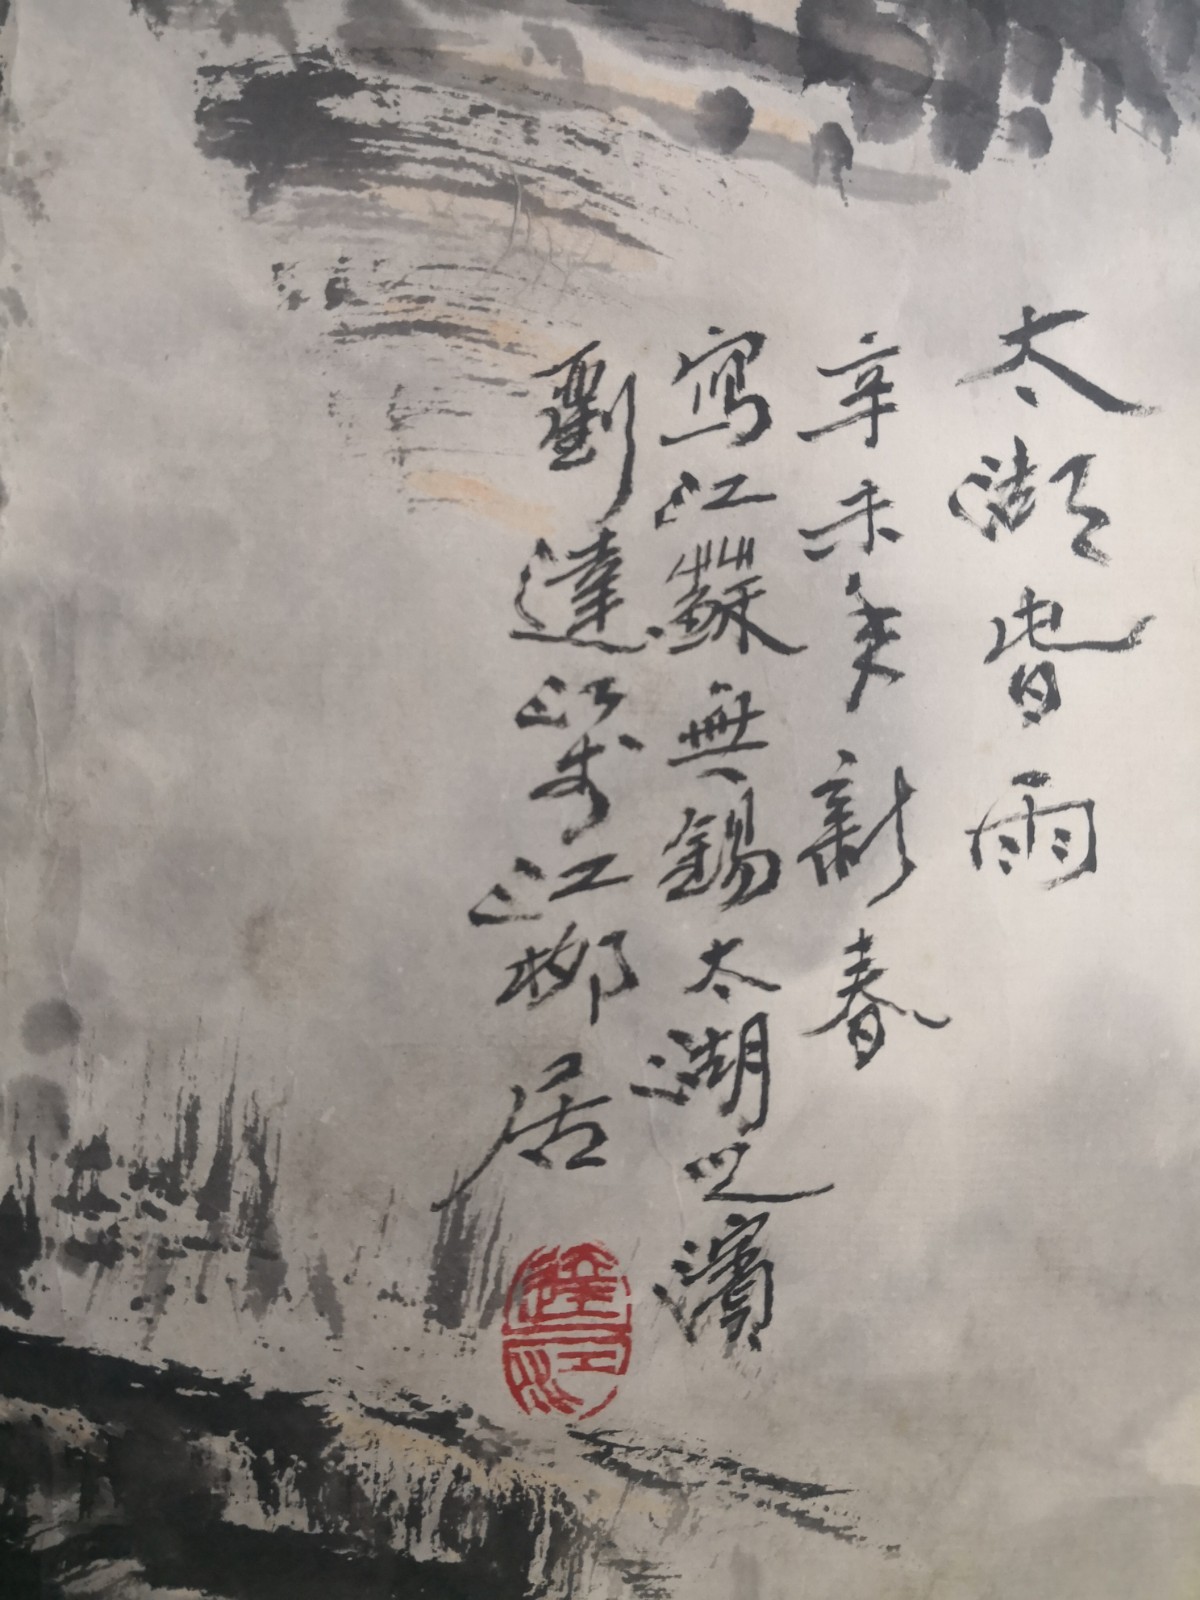 太湖旾雨
辛未秊新春
寫江蘇無錫太湖之濱
劉達江于江柳居
達江